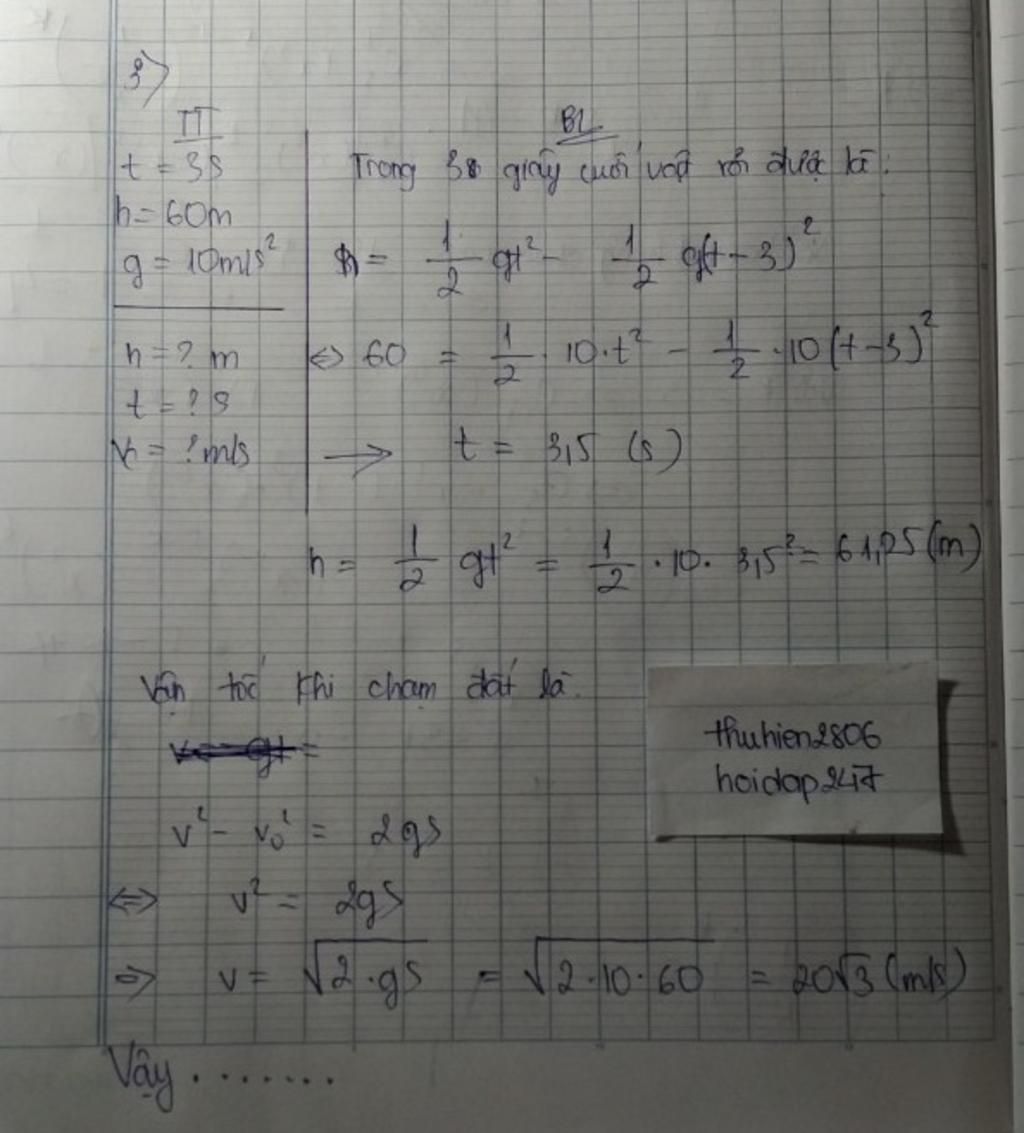 3)
TT
t = 3s
h = 60m
g = 10m/s²
h = ? m
t = ? s
v = ? m/s
BL
Trong 3s giây cuối vật rơi được là:
h = 1/2 gt² - 1/2 g(t-3)²
<=> 60 = 1/2 . 10.t² - 1/2 . 10(t-3)²
→ t = 3,5 (s)
h = 1/2 gt² = 1/2 . 10 . 3,5² = 61,25 (m)
Vận tốc khi chạm đất là
v² - v₀² = 2gS
<=> v² = 2gS
=> v = √2.gS = √2.10.60 = 20√3 (m/s)
Vậy .......
thuhien2806
hoidap247